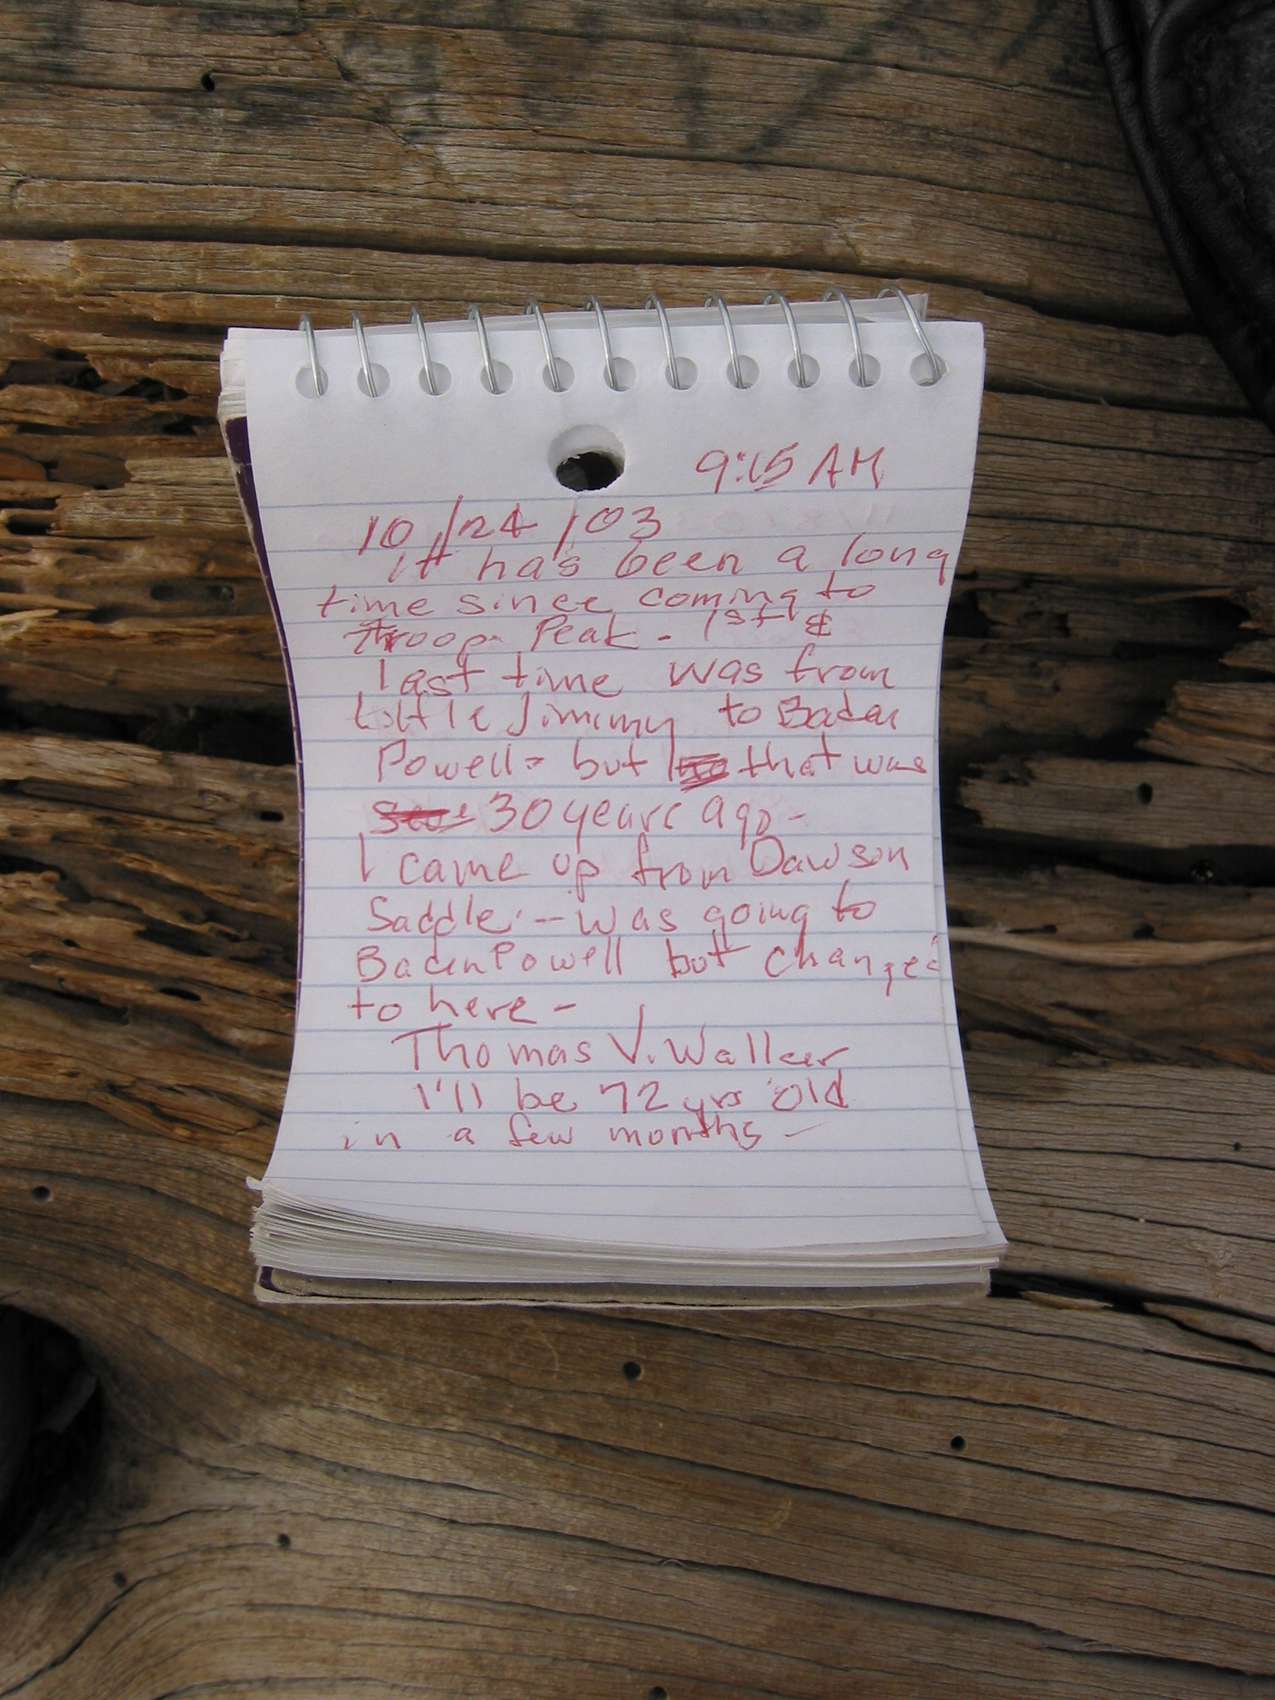 9:15 AM
10/24/03
it has been a long
time since coming to
Throop Peak - 1st &
last time was from
Little Jimmy to Baden
Powell - but that was
30 years ago -
I came up from Dawson
Saddle - was going to
Baden Powell but changed
to here -
Thomas V. Walker
I'll be 72 yrs old
in a few months -